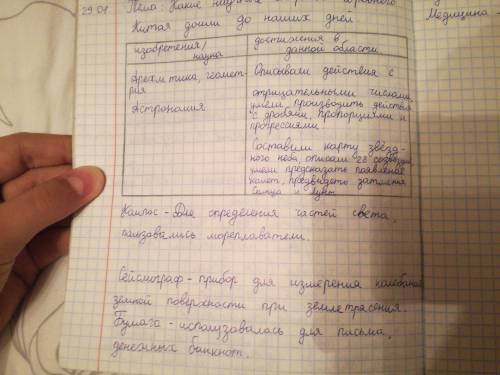 29.01
Тема: Какие
Китая дошли до наших дней
Медицина -
изобретения/
наука
достижения в
данной области.
Арехм тика, геомет-
рия
Описывали действия с
отрицательными числами,
Астрономия.
умели производить действия
с дробями, пропорциями и
прогрессиями.
Составили карту звёзд-
ного неба, описали 28 созвездий
умели предсказать появление
комет, предвидеть затмения
Солнца и Луны
Компос - Для определения частей света,
пользовались мореплаватели.
Сейсмограф - прибор для измерения колебание
земной поверхности при землетрясения.
Бумага - использовалась для письма,
денежных банкнот.